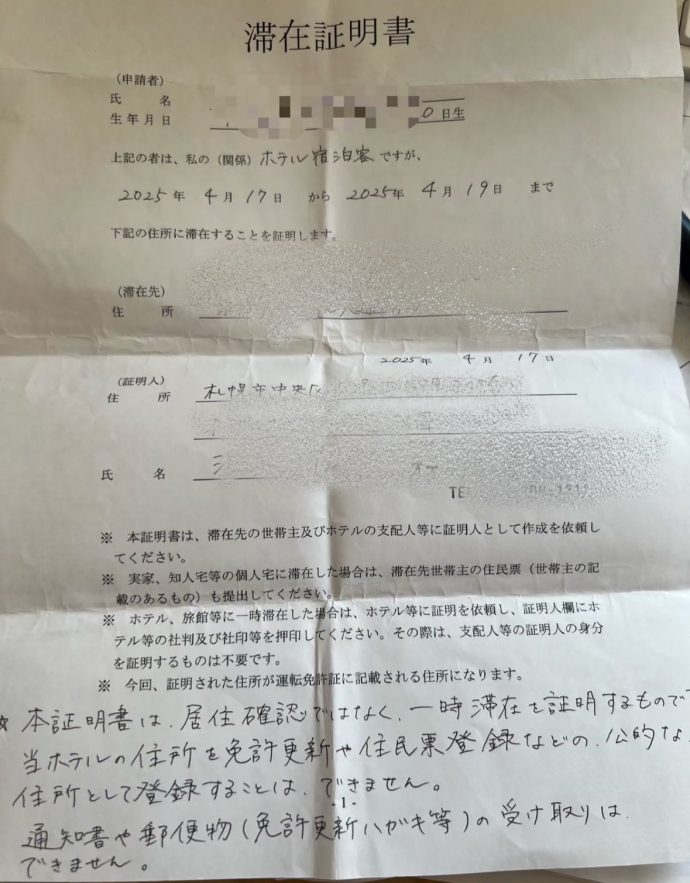 滞在証明書
（申請者）
氏　　名
生年月日　　0日生
上記の者は、私の（関係）ホテル宿泊客ですが、
2025年 4月 17日 から 2025年 4月 19日 まで
下記の住所に滞在することを証明します。
（滞在先）
住　　所
2025年 4月 17日
（証明人）
住　　所　札幌市中央区
氏　　名
TEL
※　本証明書は、滞在先の世帯主及びホテルの支配人等に証明人として作成を依頼し
てください。
※　実家、知人宅等の個人宅に滞在した場合は、滞在先世帯主の住民票（世帯主の記
載のあるもの）も提出してください。
※　ホテル、旅館等に一時滞在した場合は、ホテル等に証明を依頼し、証明人欄にホ
テル等の社判及び社印等を押印してください。その際は、支配人等の証明人の身分
を証明するものは不要です。
※　今回、証明された住所が運転免許証に記載される住所になります。
☆ 本証明書は、居住確認ではなく、一時滞在を証明するもので
当ホテルの住所を免許更新や住民票登録などの、公的な
住所として登録することは、できません。
-1-
通知書や郵便物（免許更新ハガキ等）の受け取りは
できません。